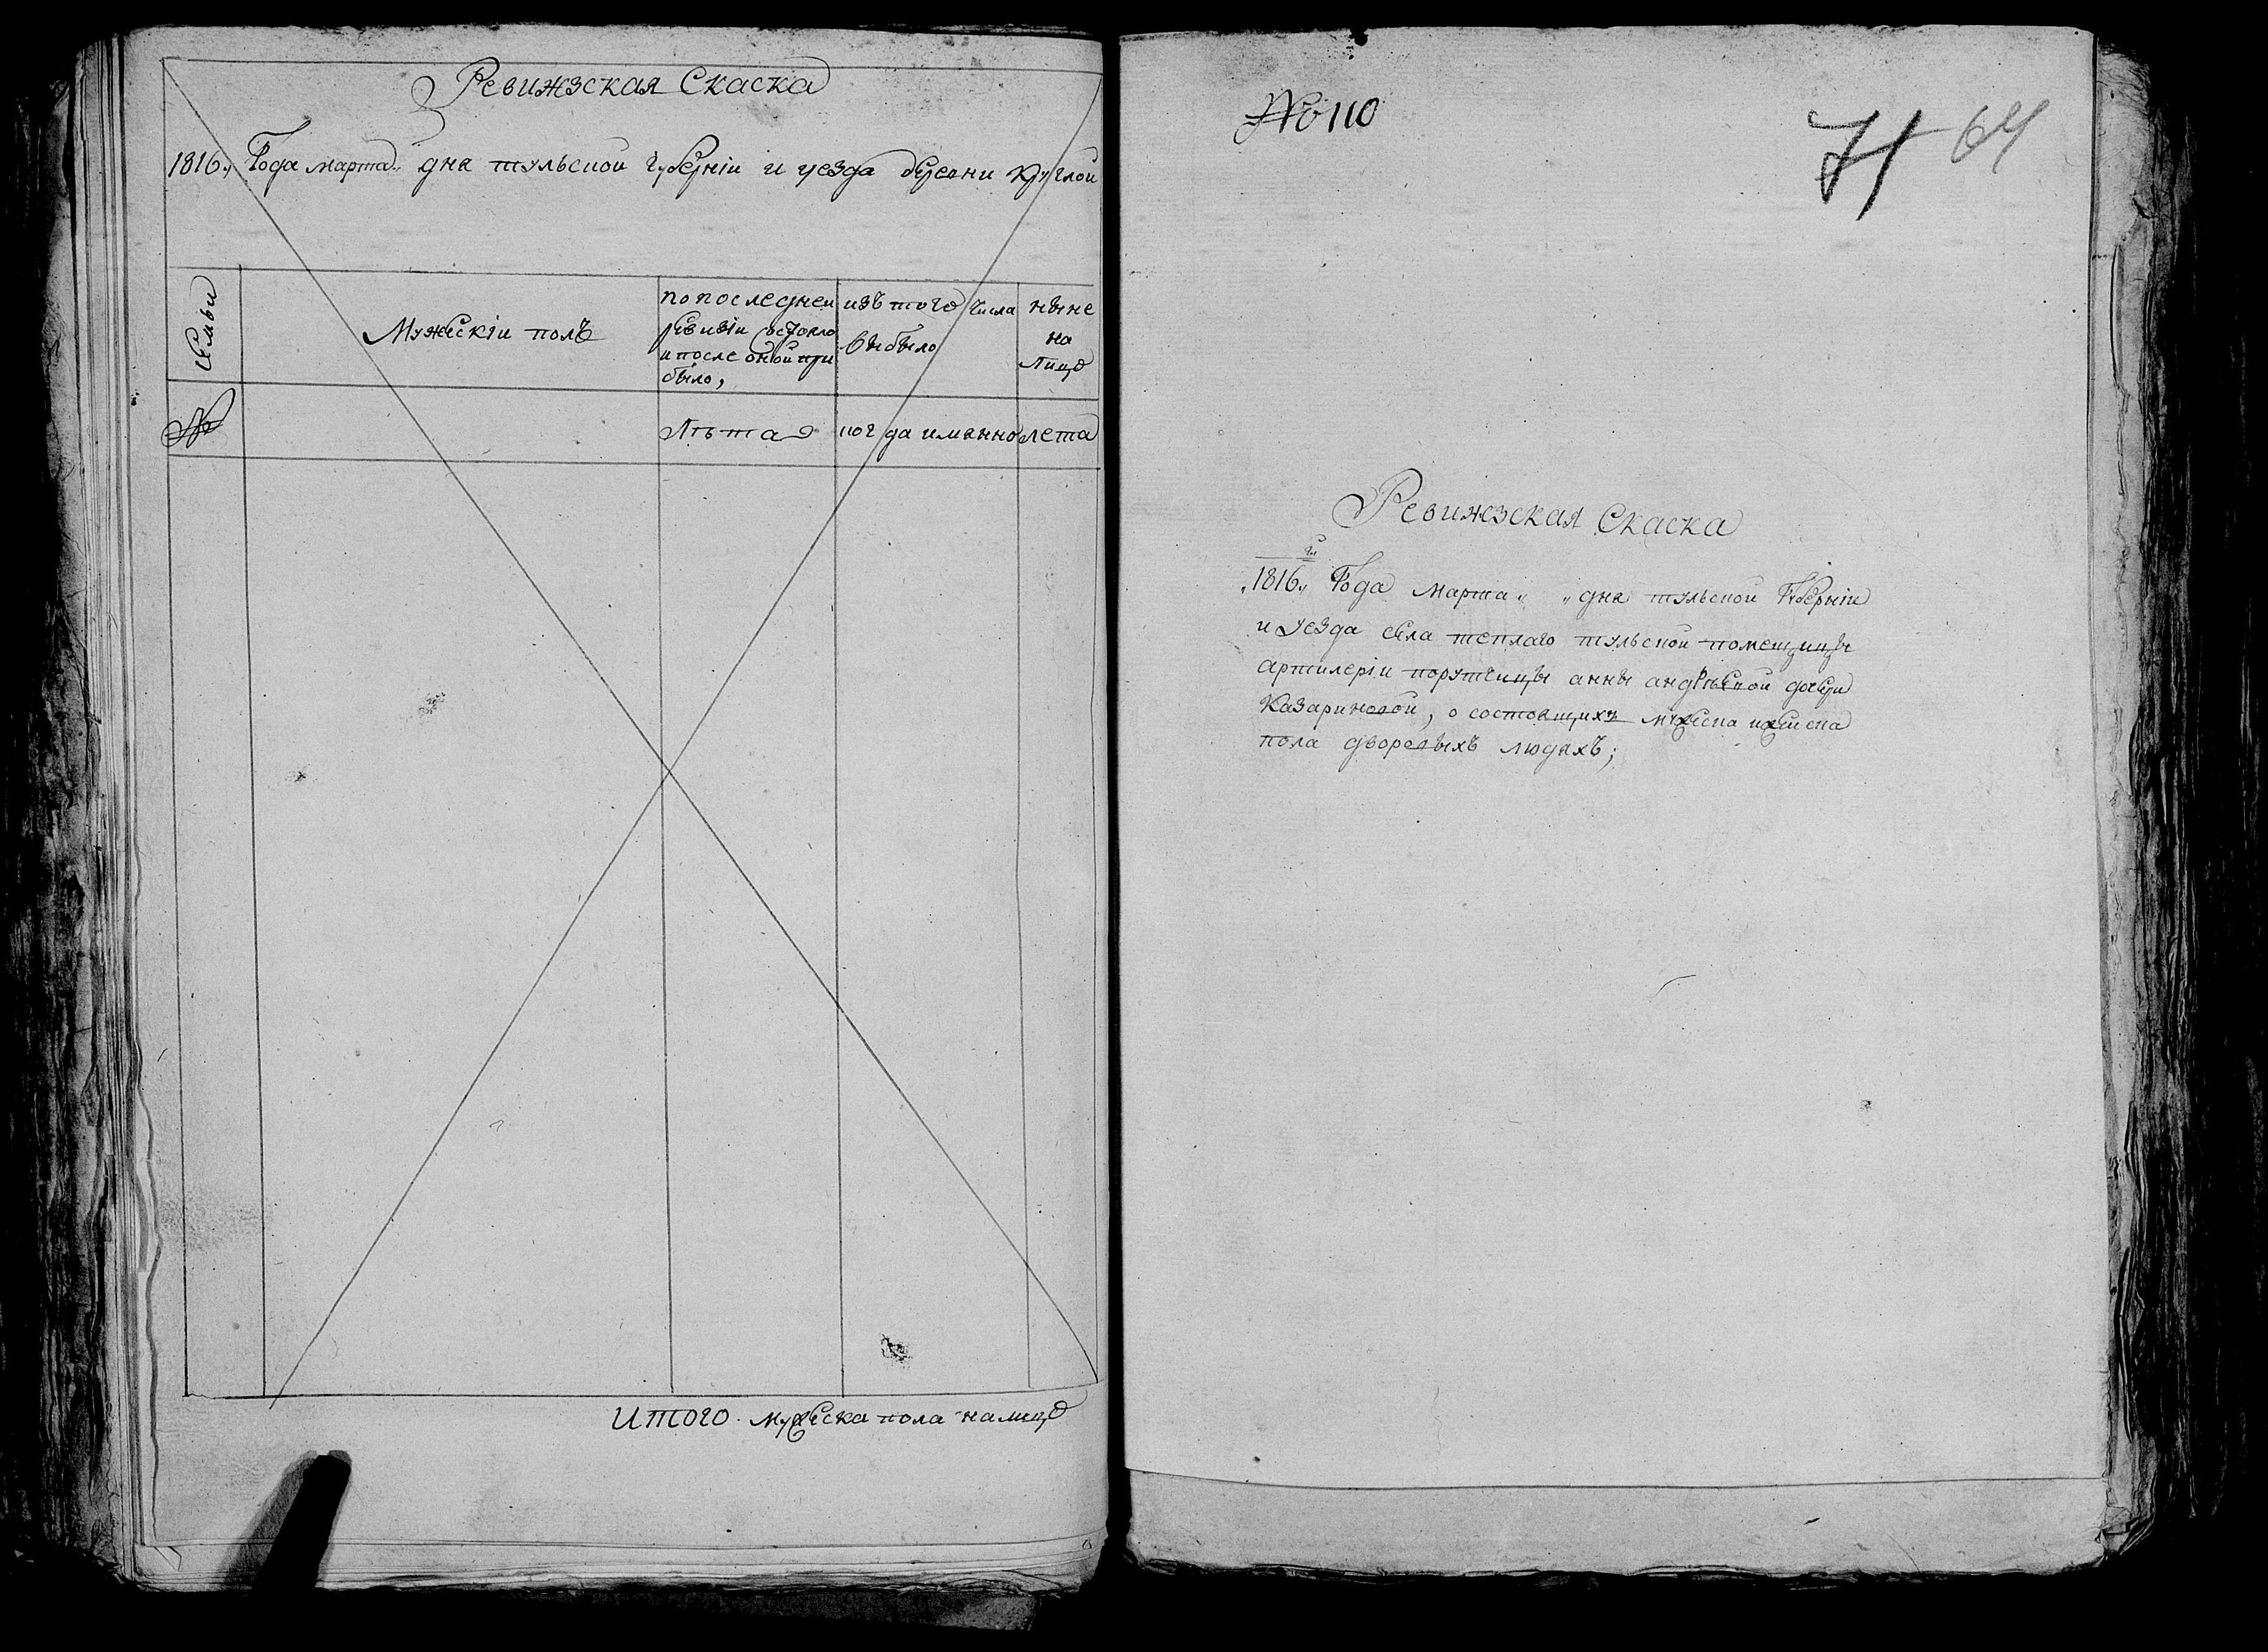 Ревижзская Скаска
1816„ Года марта„ дня тульской губерніи и уезда деревни Круглой
Семьи
Мужескій полъ
по последней
ревизіи состояло
и после оной при
было,
изъ того числа
выбыло
ныне
на
лицо
№
Лѣта
когда имянно
лета
Итого мужеска пола налицо
№ 110
71 64
Ревижзская Скаска
„1816„ Года марта„ „дня тульской Губерніи
и уезда села теплаго тульской помещицы
артилеріи порутчицы анны андреевой дочери
Казариновой, о состоящихъ мужеска и женска
пола дворовыхъ людяхъ;